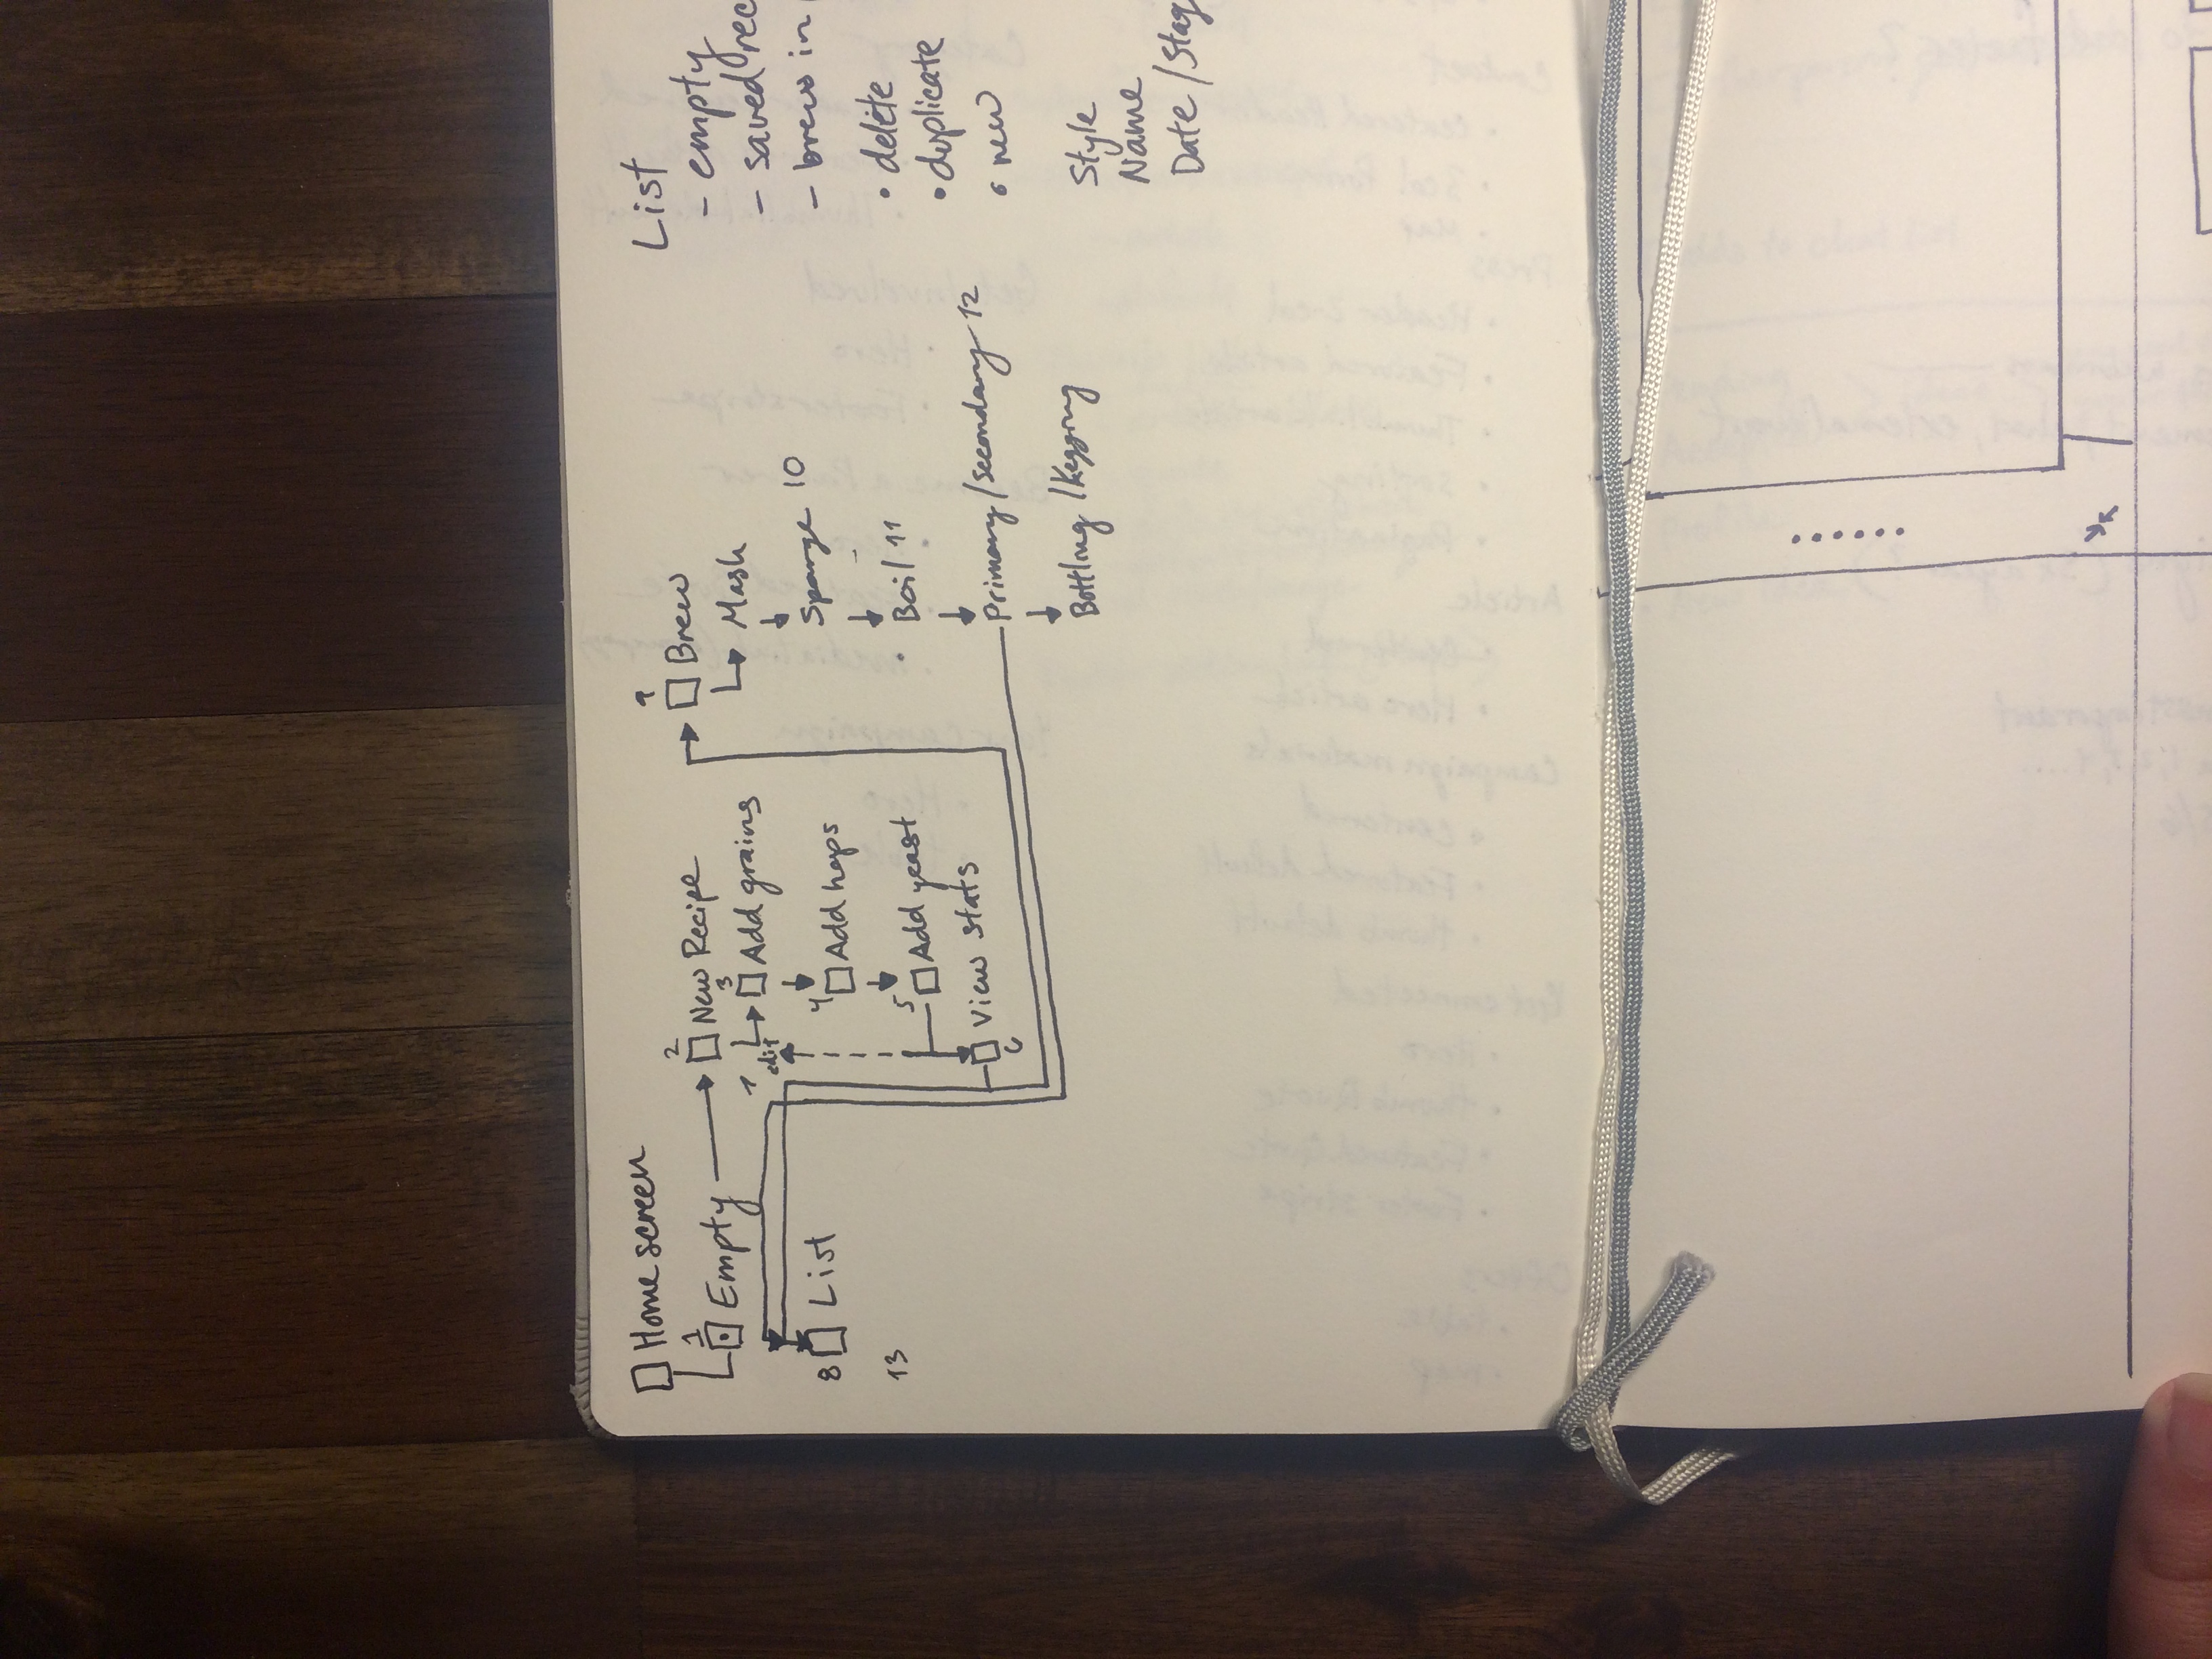 Home screen
1
Empty
8
List
13
2
New Recipe
3
Add grains
edit
4
Add hops
5
Add yeast
View stats
6
Brew
Mash
Sparge 10
Boil 11
Primary/Secondary 12
Bottling/Kegging
List
- empty
- saved rec
- brews in
• delete
• duplicate
• new
Style
Name
Date/Stag